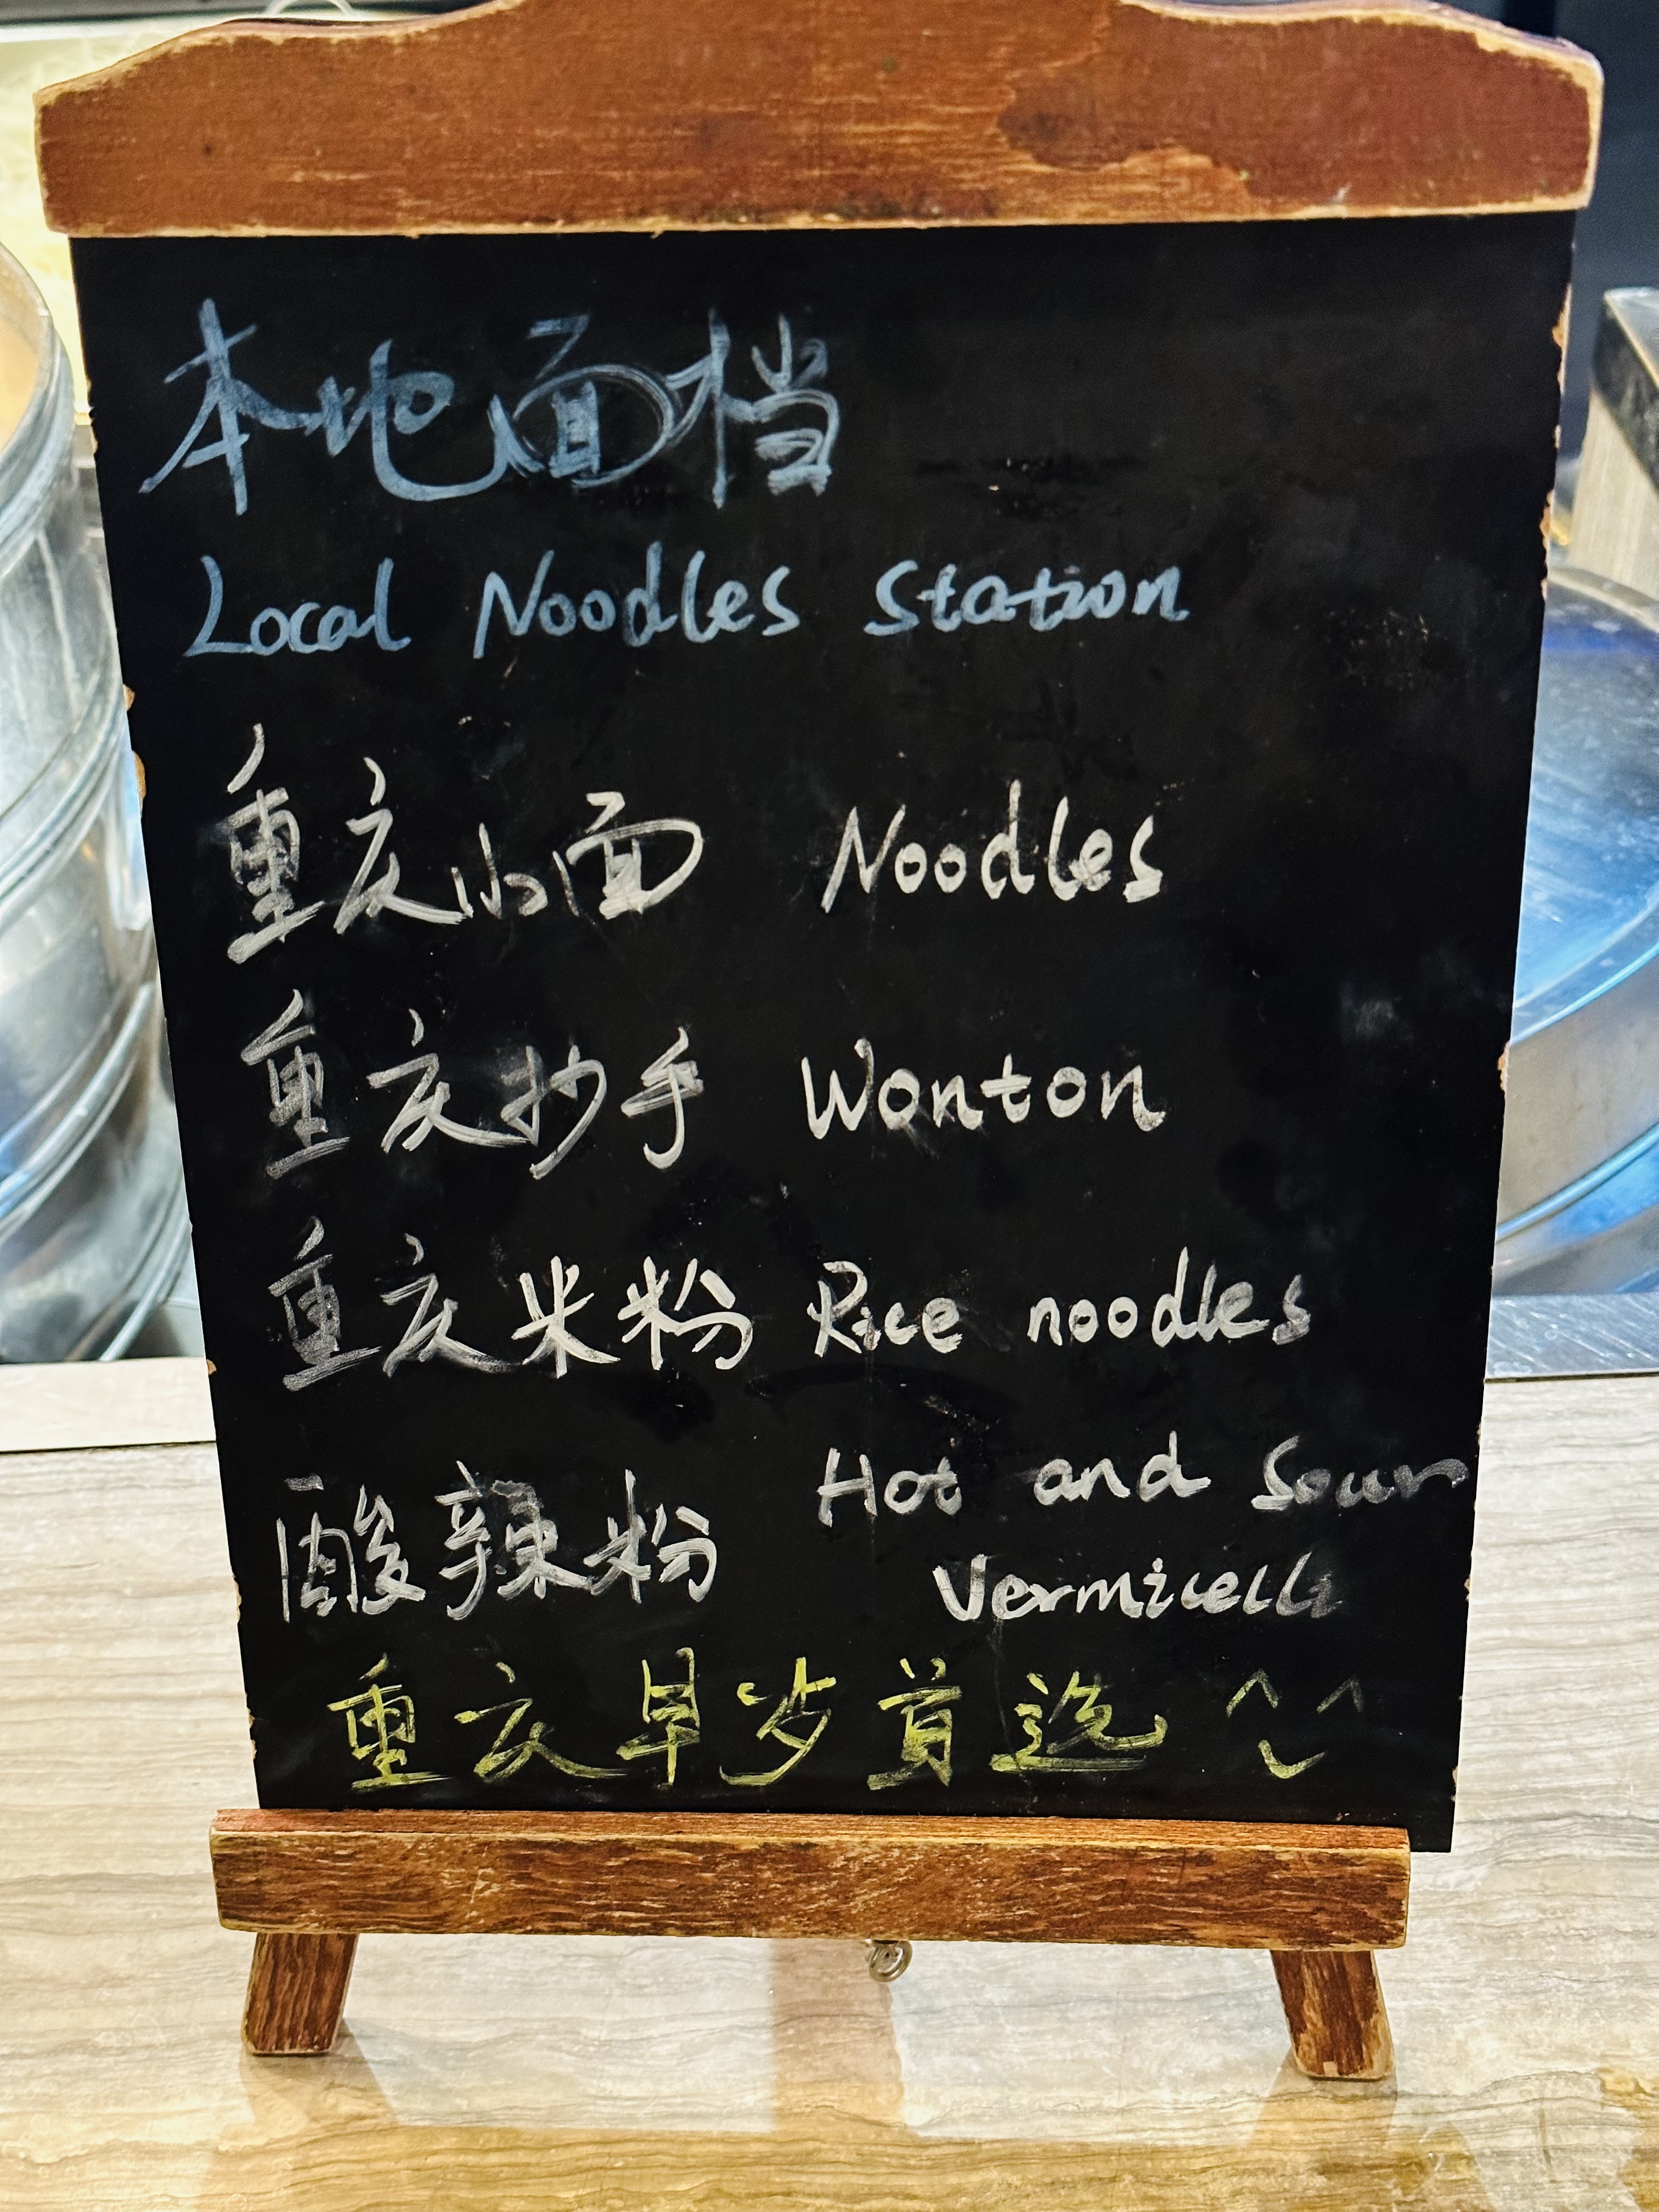 本地面档
Local Noodles Station
重庆小面 Noodles
重庆抄手 Wonton
重庆米粉 Rice noodles
酸辣粉 Hot and Sour
Vermicelli
重庆早岁首选